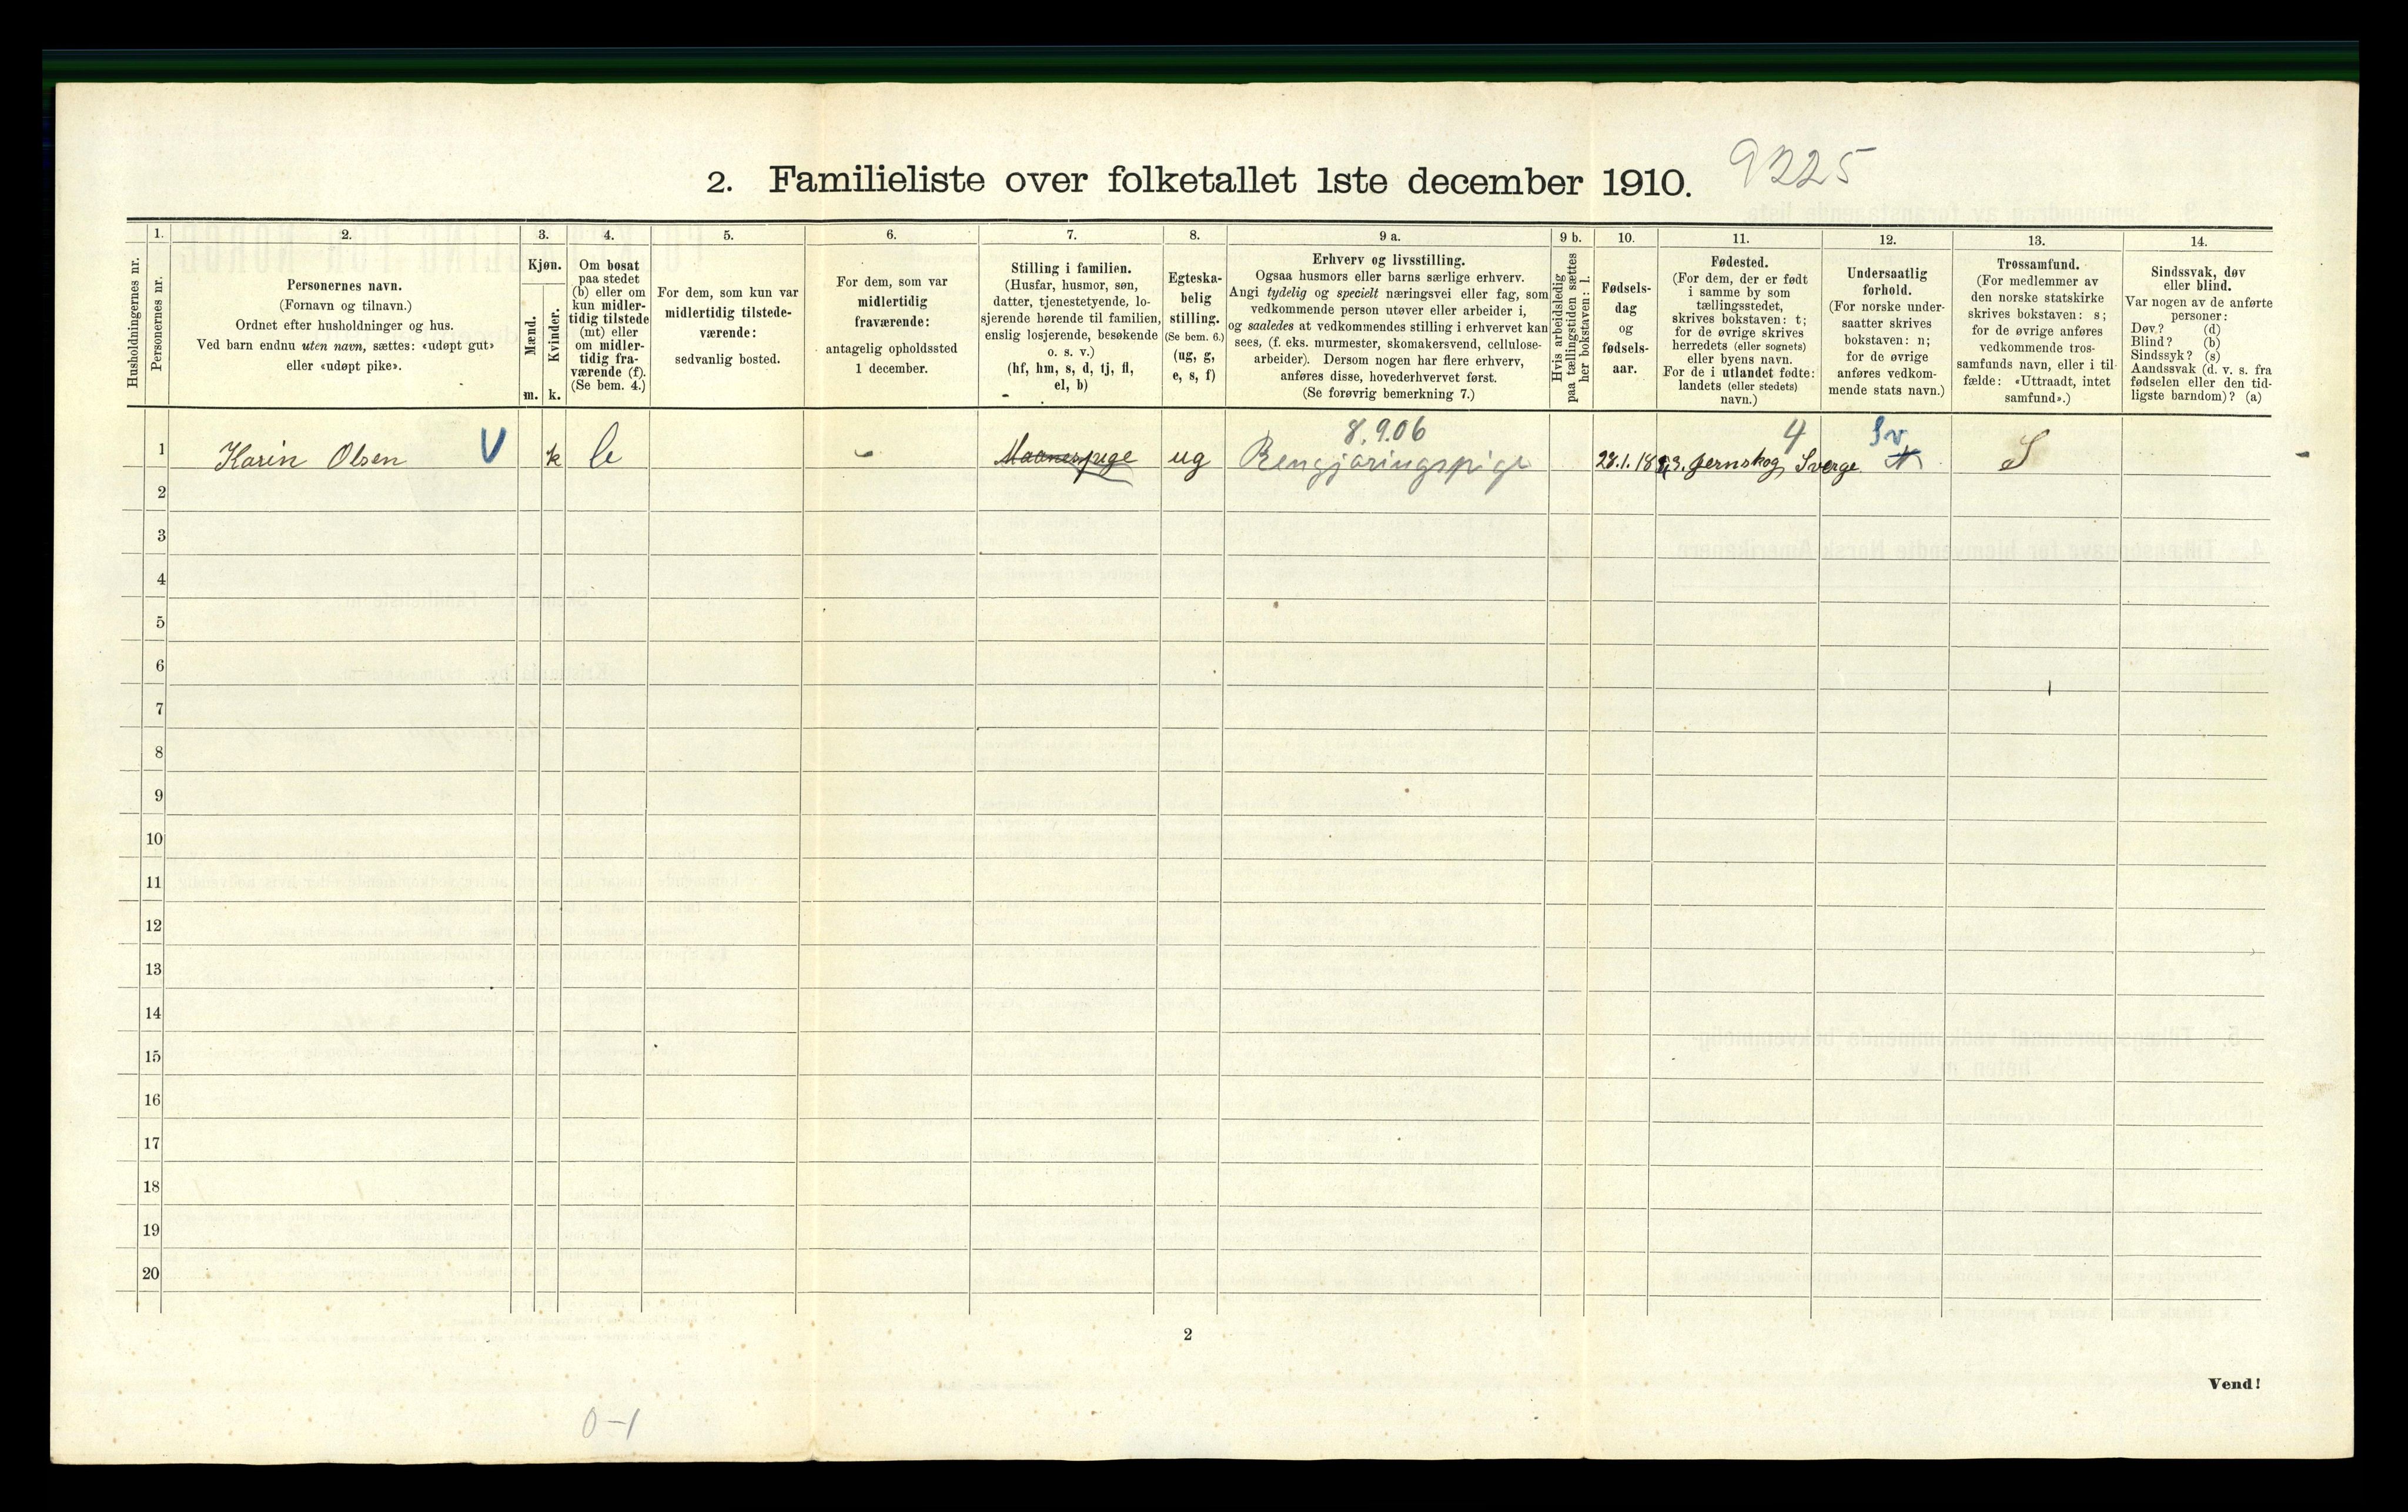 2. Familieliste over folketallet 1ste december 1910. 9225
1. 2. 3. 4. 5. 6. 7. 8. 9 a. 9 b. 10. 11. 12. 13. 14.
Husholdningernes nr.
Personernes nr.
Personernes navn.
(Fornavn og tilnavn.)
Ordnet efter husholdninger og hus.
Ved barn endnu uten navn, sættes: «udøpt gut»
eller «udøpt pike».
Kjøn.
Mænd.
Kvinder.
m. k.
Om bosat
paa stedet
(b) eller om
kun midler-
tidig tilstede
(mt) eller
om midler-
tidig fra-
værende (f).
(Se bem. 4.)
For dem, som kun var
midlertidig tilstede-
værende:
sedvanlig bosted.
For dem, som var
midlertidig
fraværende:
antagelig opholdssted
1 december.
Stilling i familien.
(Husfar, husmor, søn,
datter, tjenestetyende, lo-
sjerende hørende til familien,
enslig losjerende, besøkende
o. s. v.)
(hf, hm, s, d, tj, fl,
el, b)
Egteska-
belig
stilling.
(Se bem. 6.)
(ug, g,
e, s, f)
Erhverv og livsstilling.
Ogsaa husmors eller barns særlige erhverv.
Angi tydelig og specielt næringsvei eller fag, som
vedkommende person utøver eller arbeider i,
og saaledes at vedkommendes stilling i erhvervet kan
sees, (f. eks. murmester, skomakersvend, cellulose-
arbeider). Dersom nogen har flere erhverv,
anføres disse, hovederhvervet først.
(Se forøvrig bemerkning 7.)
Hvis arbeidsledig
paa tællingstiden sættes
her bokstaven: l.
Fødsels-
dag
og
fødsels-
aar.
Fødested.
(For dem, der er født
i samme by som
tællingsstedet,
skrives bokstaven: t;
for de øvrige skrives
herredets (eller sognets)
eller byens navn.
For de i utlandet fødte:
landets (eller stedets)
navn.)
Undersaatlig
forhold.
(For norske under-
saatter skrives
bokstaven: n;
for de øvrige
anføres vedkom-
mende stats navn.)
Trossamfund.
(For medlemmer av
den norske statskirke
skrives bokstaven: s;
for de øvrige anføres
vedkommende tros-
samfunds navn, eller i til-
fælde: «Uttraadt, intet
samfund».)
Sindssvak, døv
eller blind.
Var nogen av de anførte
personer:
Døv? (d)
Blind? (b)
Sindssyk? (s)
Aandssvak (d. v. s. fra
fødselen eller den tid-
ligste barndom)? (a)
8.9.06 4 Sv
1 Karin Olsen V k b ug Rengjøringspige Jernskog, Sverge N S
2
3
4
5
6
7
8
9
10
11
12
13
14
15
16
17
18
19
20
2
Vend!
0-1